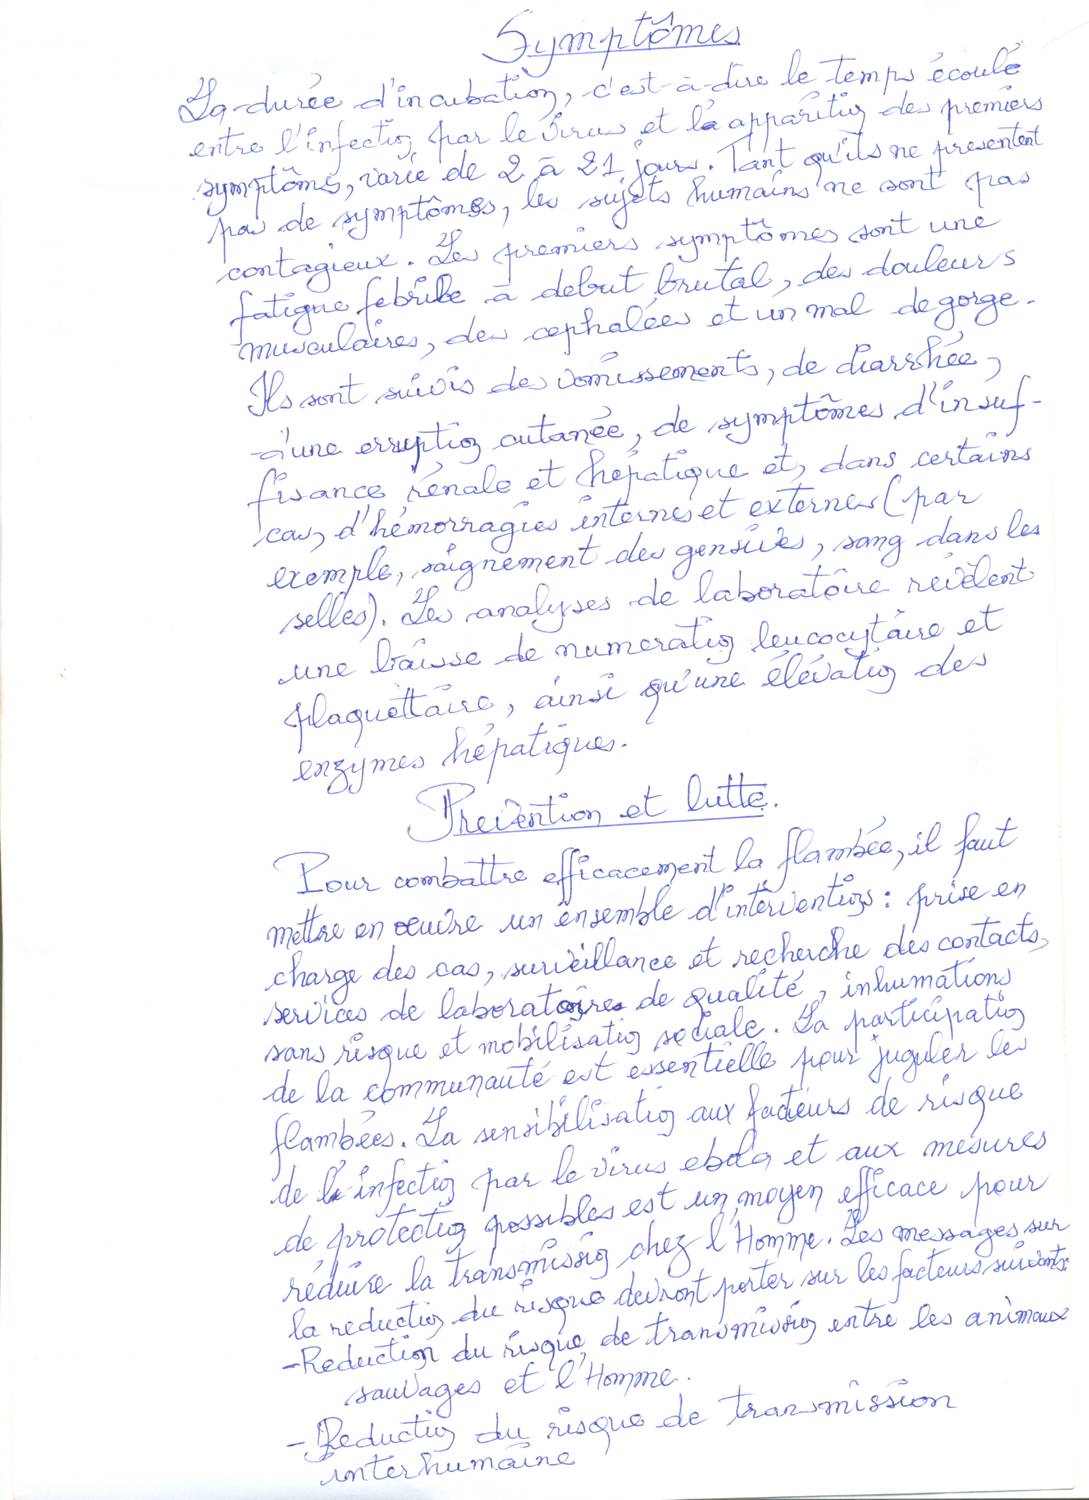 Symptômes
La durée d'incubation, c'est-à-dire le temps écoulé
entre l'infection par le virus et la apparition des premiers
symptôms, varie de 2 à 21 jours. Tant qu'ils ne presentent
pas de symptômes, les sujets humains ne sont pas
contagieux. Les premiers symptômes sont une
fatigue febrile à debut brutal, des douleurs
musculaires, des cephalées et un mal de gorge.
Ils sont suivis de vomissements, de diarrhée,
d'une erruption cutanée, de symptômes d'insuf-
fisance rénale et hépatique et, dans certains
cas, d'hémorragies internes et externes (par
exemple, saignement des gensives, sang dans les
selles). Les analyses de laboratoire revèlent
une baisse de numeration leucocytaire et
plaquettaire, ainsi qu'une élévation des
enzymes hépatiques.
Prevention et lutte.
Pour combattre efficacement la flambée, il faut
mettre en œuvre un ensemble d'interventions : prise en
charge des cas, surveillance et recherche des contacts,
services de laboratoires de qualité, inhumations
sans risque et mobilisation sociale. La participation
de la communauté est essentielle pour juguler les
flambées. La sensibilisation aux facteurs de risque
de l'infection par le virus ebola et aux mesures
de protection possibles est un moyen efficace pour
réduire la transmission chez l'Homme. Les messages sur
la reduction du risque devront porter sur les facteurs suivants:
-Reduction du risque de transmission entre les animaux
sauvages et l'Homme.
-Reduction du risque de transmission
interhumaine